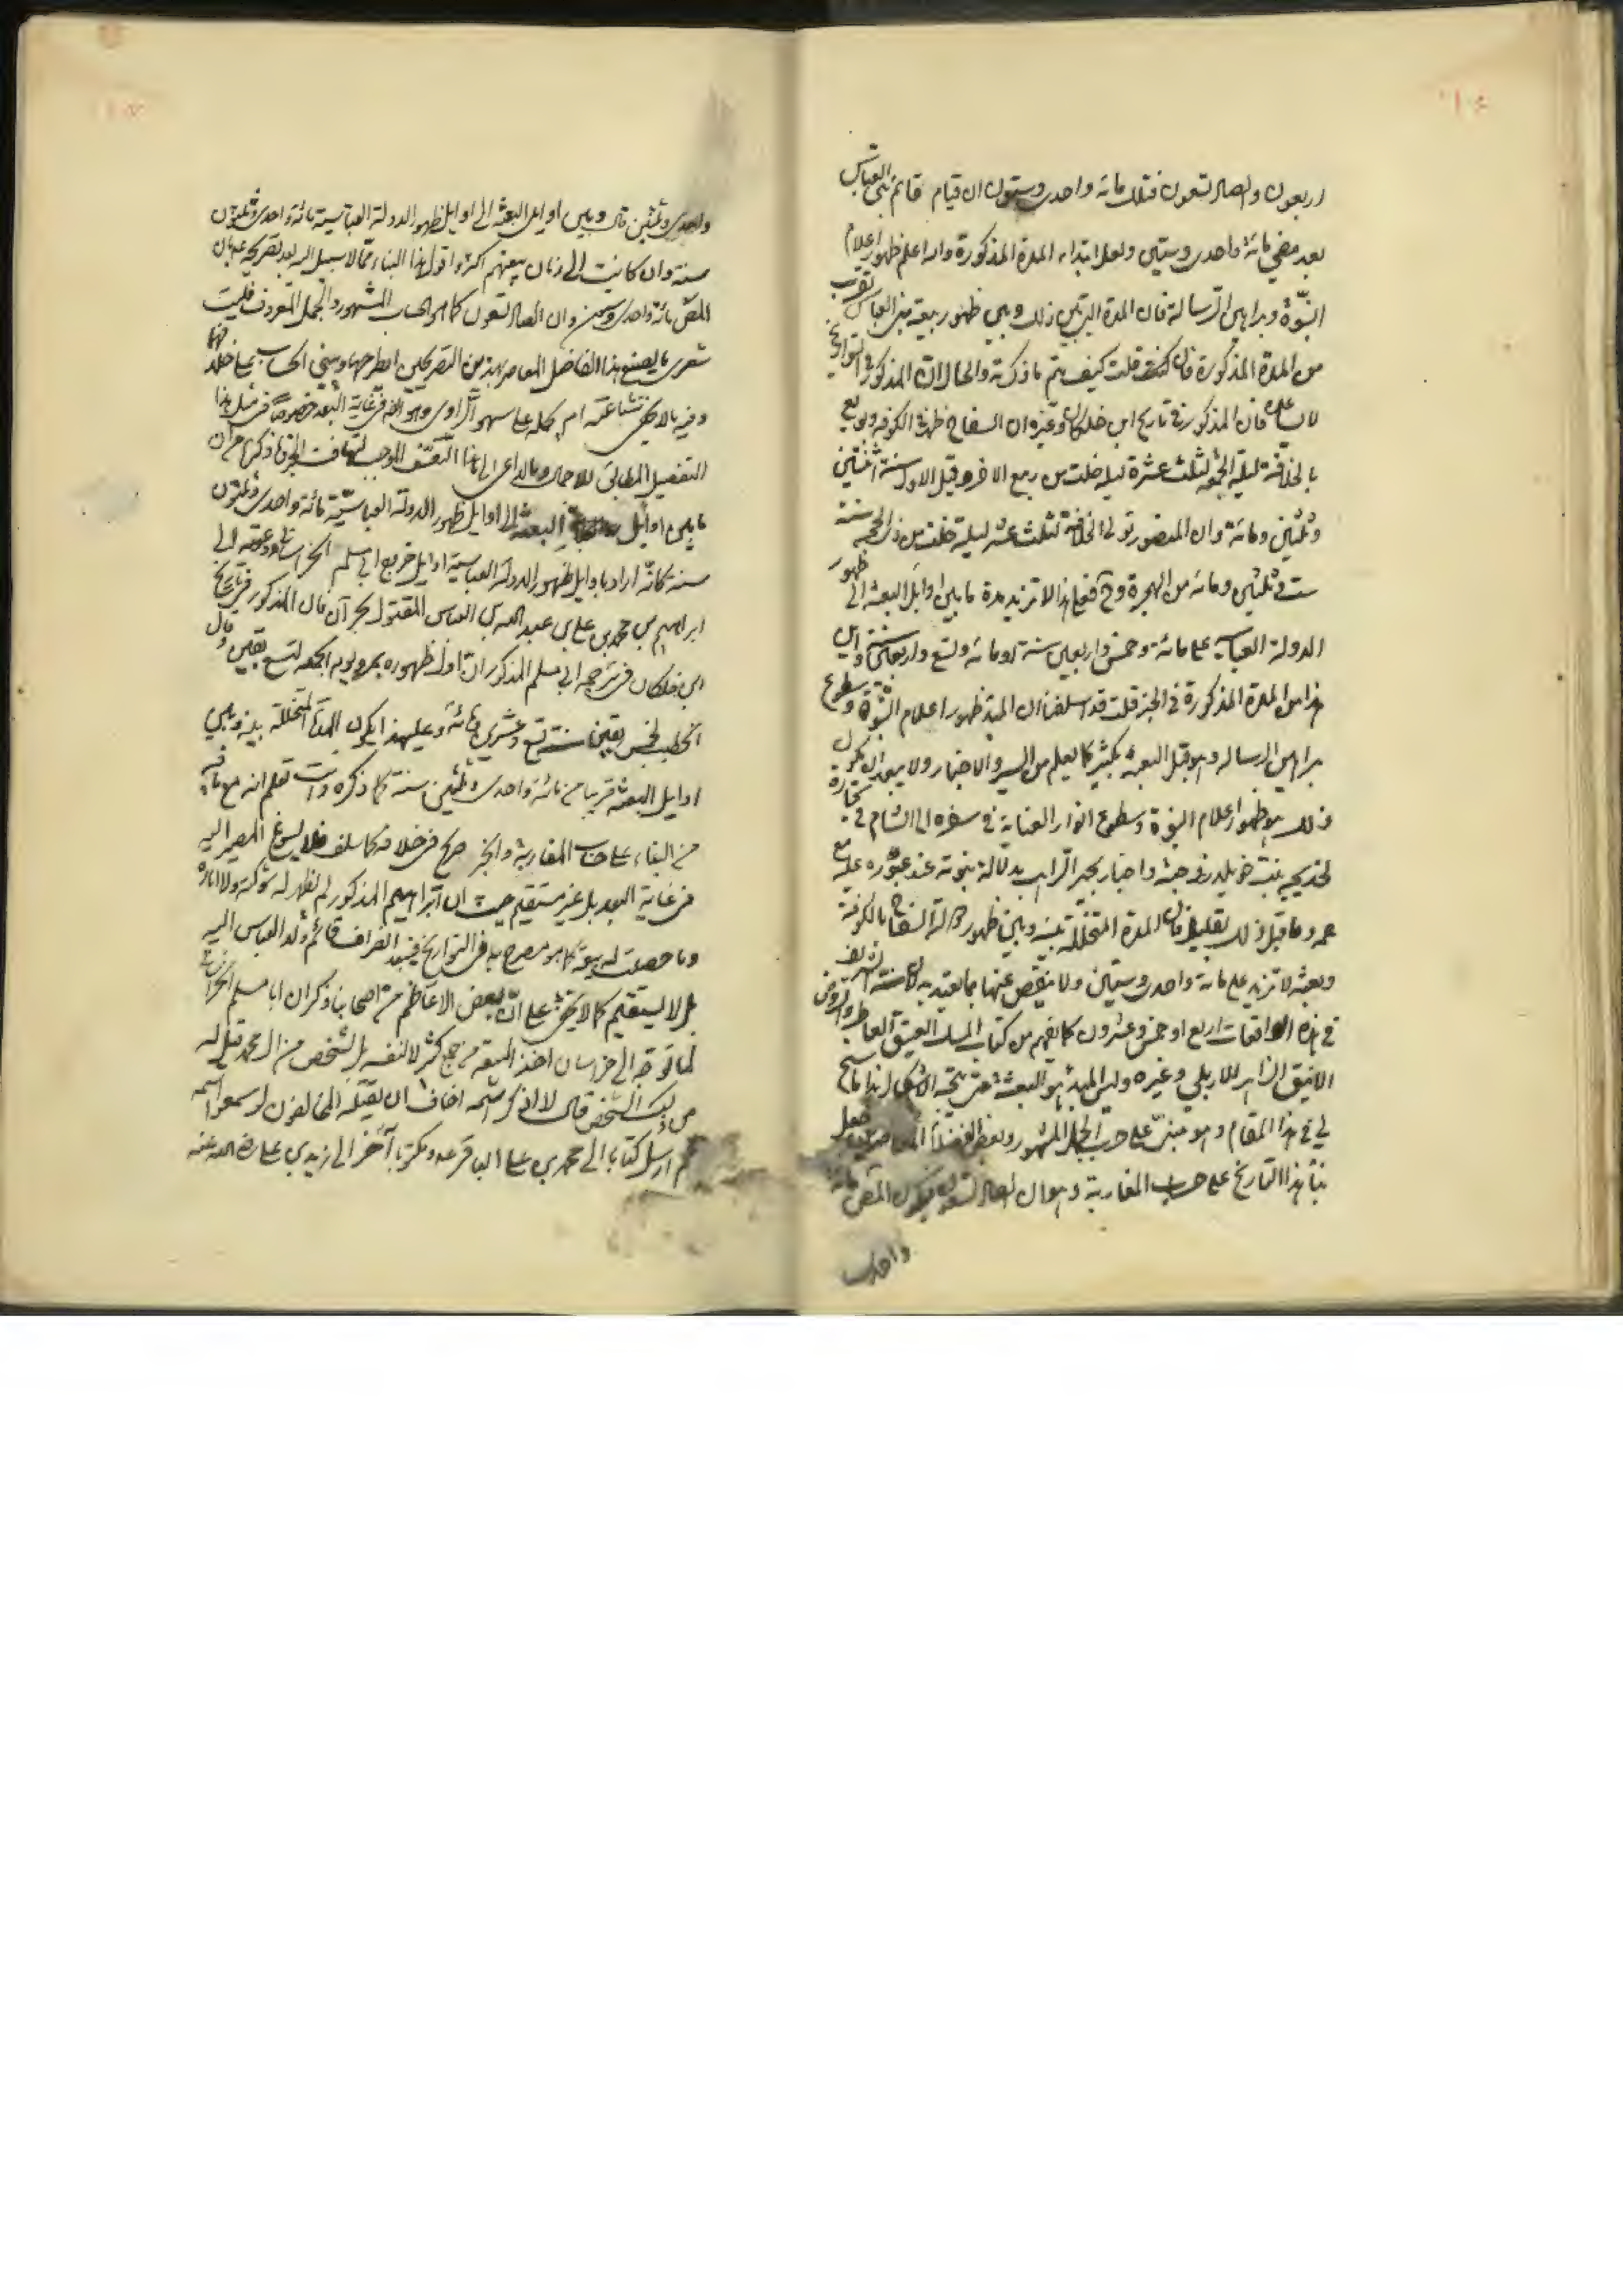 اربعون والصاد تسعون فتلك مائة واحدى وستون ان قيام قائم بنى العباس
بعد مضى مائة واحدى وستين ولعل ابتداء المدة المذكورة والله اعلم ظهور اعلام
النبوة وبراهين الرسالة فان المدة التى بين ذلك وبين ظهور بيعة بنى العباس تقرب
من المدة المذكورة فان قلت كيف يتم ما ذكرته والحال ان المذكور فى التواريخ
لا يساعده فان المذكور فى تاريخ ابن خلكان وغيره ان السفاح ظهر فى الكوفه وبويع
بالخلافة ليلة الجمعه لثلث عشرة ليله خلت من ربيع الاخر وقيل الاول سنة اثنتين
وثلثين ومائة وان المنصور تولى الخلافة لثلث عشر ليلة خلت من ذى الحجه سنة
ست وثلثين ومائة من الهجرة وح فعلى هذا لا تزيد مدة ما بين اوايل البعثه الى ظهور
الدولة العباسيه على مائة وخمس واربعين سنة او مائة وتسع واربعين سنة واين
هذا من المدة المذكورة فى الخبر قلت قد اسلفنا ان المبدء ظهور اعلام النبوة وسطوع
براهين الرساله وهو قبل البعثه بكثير كما يعلم من السير والاخبار ولا يبعد ان يكون
ذلك هو ظهور اعلام النبوة وسطوع انوار العناية فى سفره الى الشام فى تجارة
لخديجه بنت خويلد زوجته واخبار بحير الراهب بدلالة نبوته عند عبوره عليه مع
عمه وما قبل ذلك بقليل فان المدة المتخللة بينه وبين ظهور دولة السفاح بالكوفة
وبعثه لا تزيد على مائة واحدى وستين ولا ينقص عنها بما يعتد به لان سنه الشريف
فى هذه الواقعات اربع او خمس وعشرون كما يفهم من كتاب المسلك العتيق العاطر والروض
الانيق الزاهر للاربلى وغيره وليس المبدء هو البعثة حتى يتجه الاشكال هذا ما سنح
لى فى هذا المقام وهو مبنى على حساب الجمل المشهور وبعض الفضلاء المعاصرين جعل
بناء هذا التاريخ على حساب المغاربة وهو ان الصاد ستون فيكون المص مائة
واحدى
واحدى وثلثين قال وبين اوايل البعثه الى اوايل ظهور الدولة العباسية مائة واحدى وثلثون
سنة وان كانت الى زمان بيعتهم اكثر واقول هذا البناء مما لا سبيل اليه بعد تصريحه ع بان
المص مائة واحدى وستين وان الصاد تسعون كما هو الحساب المشهور والجمل المعروف فليت
شعرى ما يصنع هذا الفاضل المعاصر بهذين التصريحين ايطرحهما ويبنى الحساب على خلافهما
وفيه ما لا يخفى شناعته ام يحمله على سهو الراوى وهو ايضا فى غاية البعد خصوصا فى مثل هذا
التفصيل المطابق للاجمال وما الداعى الى هذا التعسف الموجب لتهافت الخبر فما ذكره من ان
ما بين اوايل البعثه الى اوايل ظهور الدولة العباسية مائة واحدى وثلثون
سنة كانه اراد باوايل ظهور الدولة العباسية اوايل خروج ابى مسلم الخراسانى ودعوته الى
ابراهيم بن محمد بن على بن عبد الله بن العباس المقتول بحران فان المذكور فى تاريخ
ابن خلكان فى ترجمه ابى مسلم المذكور ان اول ظهوره بمرو يوم الجمعه لتسع بقين وقال
الخطيب لخمس بقين سنة تسع وعشرين ومائة وعلى هذا يكون المدة المتخللة بينه وبين
اوايل البعثه قريبا من مائة واحدى وثلثين سنة كما ذكره وانت تعلم انه مع ما فيه
من البناء على حساب المغاربة والخبر صريح فى خلافه كما سلف فلا يسوغ المصير اليه
فى غاية البعد بل غير مستقيم حيث ان ابراهيم المذكور لم يظهر له شوكة ولا امارة
وما حصلت له بيعة كما هو مصرح به فى التواريخ فيبعد انصراف قائم ولد العباس اليه
بل لا يستقيم كما لا يخفى على ان بعض الاعاظم من اصحابنا ذكر ان ابا مسلم الخراسانى
لما توجه الى خراسان اخذ البيعة من جمع كثير لا لنفسه بل لشخص من ال محمد قيل له
من ذلك الشخص قال لا اذكر اسمه اخاف ان يقتله المخالفون لو سمعوا اسمه
ثم ارسل كتابا الى محمد بن على الباقر ع ومكتوبا آخر الى زيد بن على رضى الله عنه